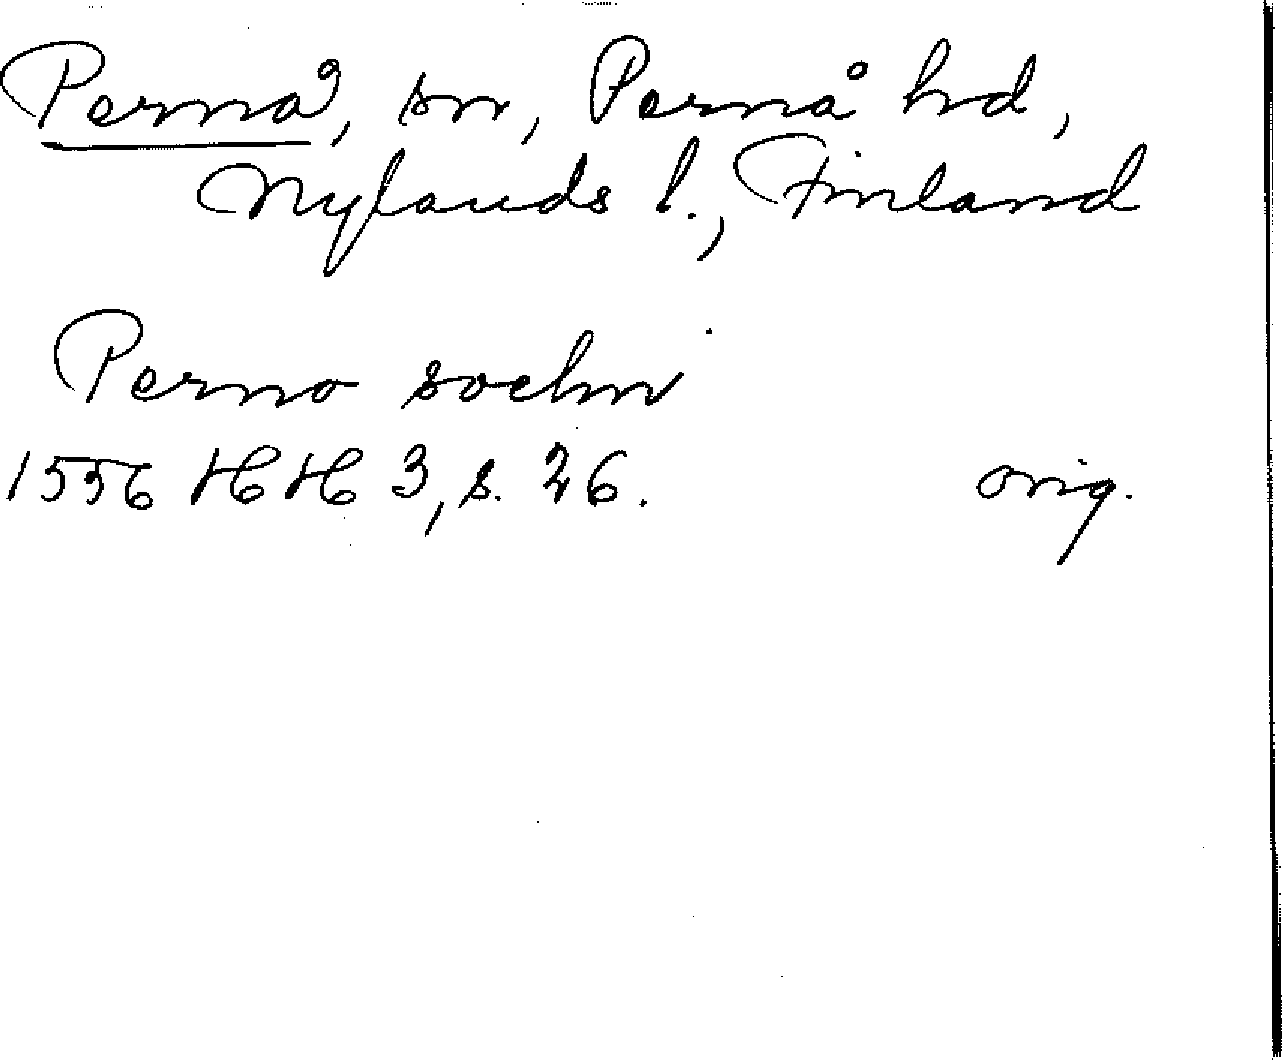 Pernå, sn, Pernå hd,
Nylands l., Finland
Perno sochn
1556 HH 3, s. 26. orig.